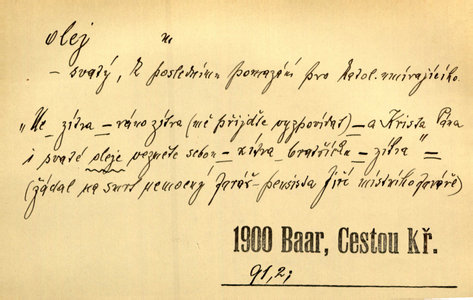 olej m.
– svatý, k poslednímu pomazání pro katol. umírajícího.
"Ne zítra – ráno zítra (mě přijdte vyzpovídat) – a Krista Pána
i svaté oleje vezměte sebou – zítra bratříčku – zítra" =
(žádal na smrt nemocný farář-pensista Jiří místního faráře)
1900 Baar, Cestou Kř.
91,2;